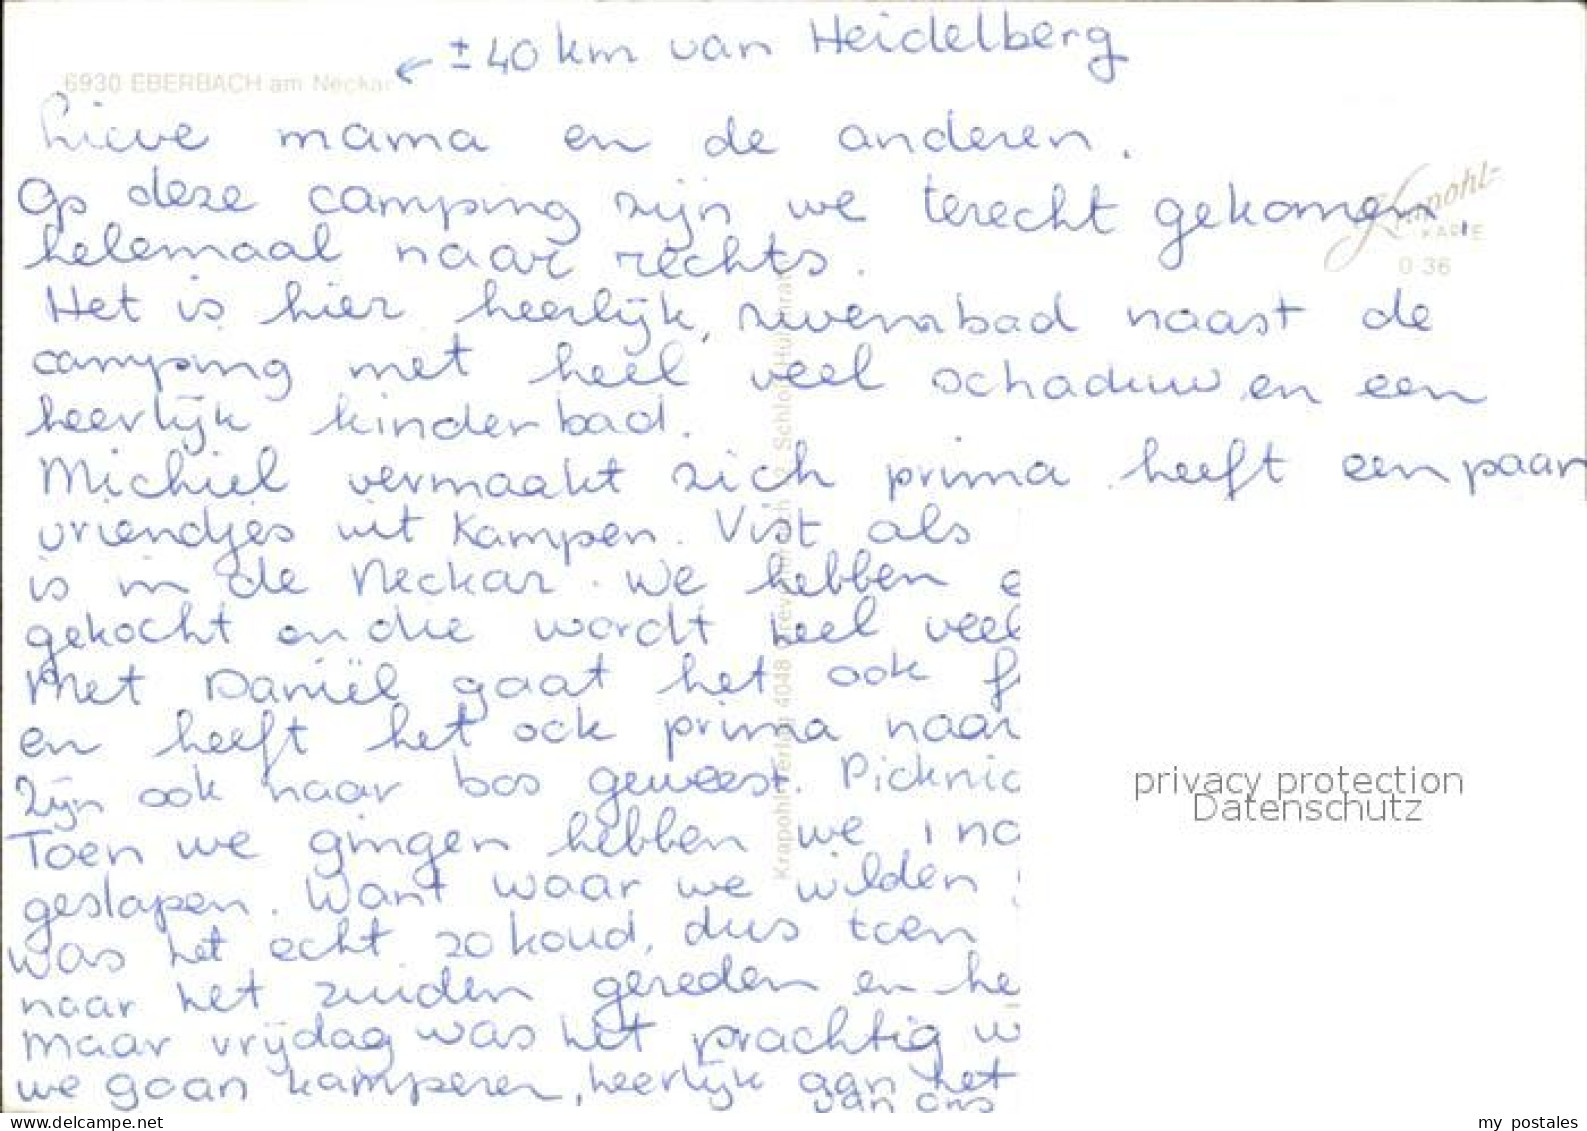 ± 40 km van Heidelberg
6930 EBERBACH am Neckar
Lieve mama en de anderen.
Op deze camping zijn we terecht gekomen
helemaal naar rechts.
Krapohl-
KARTE
0 36
Het is hier heerlijk, zwembad naast de
camping met heel veel schaduw en een
heerlijk kinderbad.
Michiel vermaakt zich prima heeft een paar
vriendjes uit Kampen. Vist als
is in de Neckar. We hebben e
gekocht en die wordt heel veel
Met Daniël gaat het ook f
en heeft het ook prima naar
Zijn ook naar bos geweest. Picknic
Toen we gingen hebben we 1 na
geslapen. Want waar we wilden
was het echt zo koud, dus toen
naar het zuiden gereden en he
maar vrijdag was het prachtig w
we gaan kamperen, heerlijk aan het
van ons
Krapohl-Verlag 4048 Grevenbroich 12 Schloß Hülchrath
privacy protection
Datenschutz
www.delcampe.net
my_postales